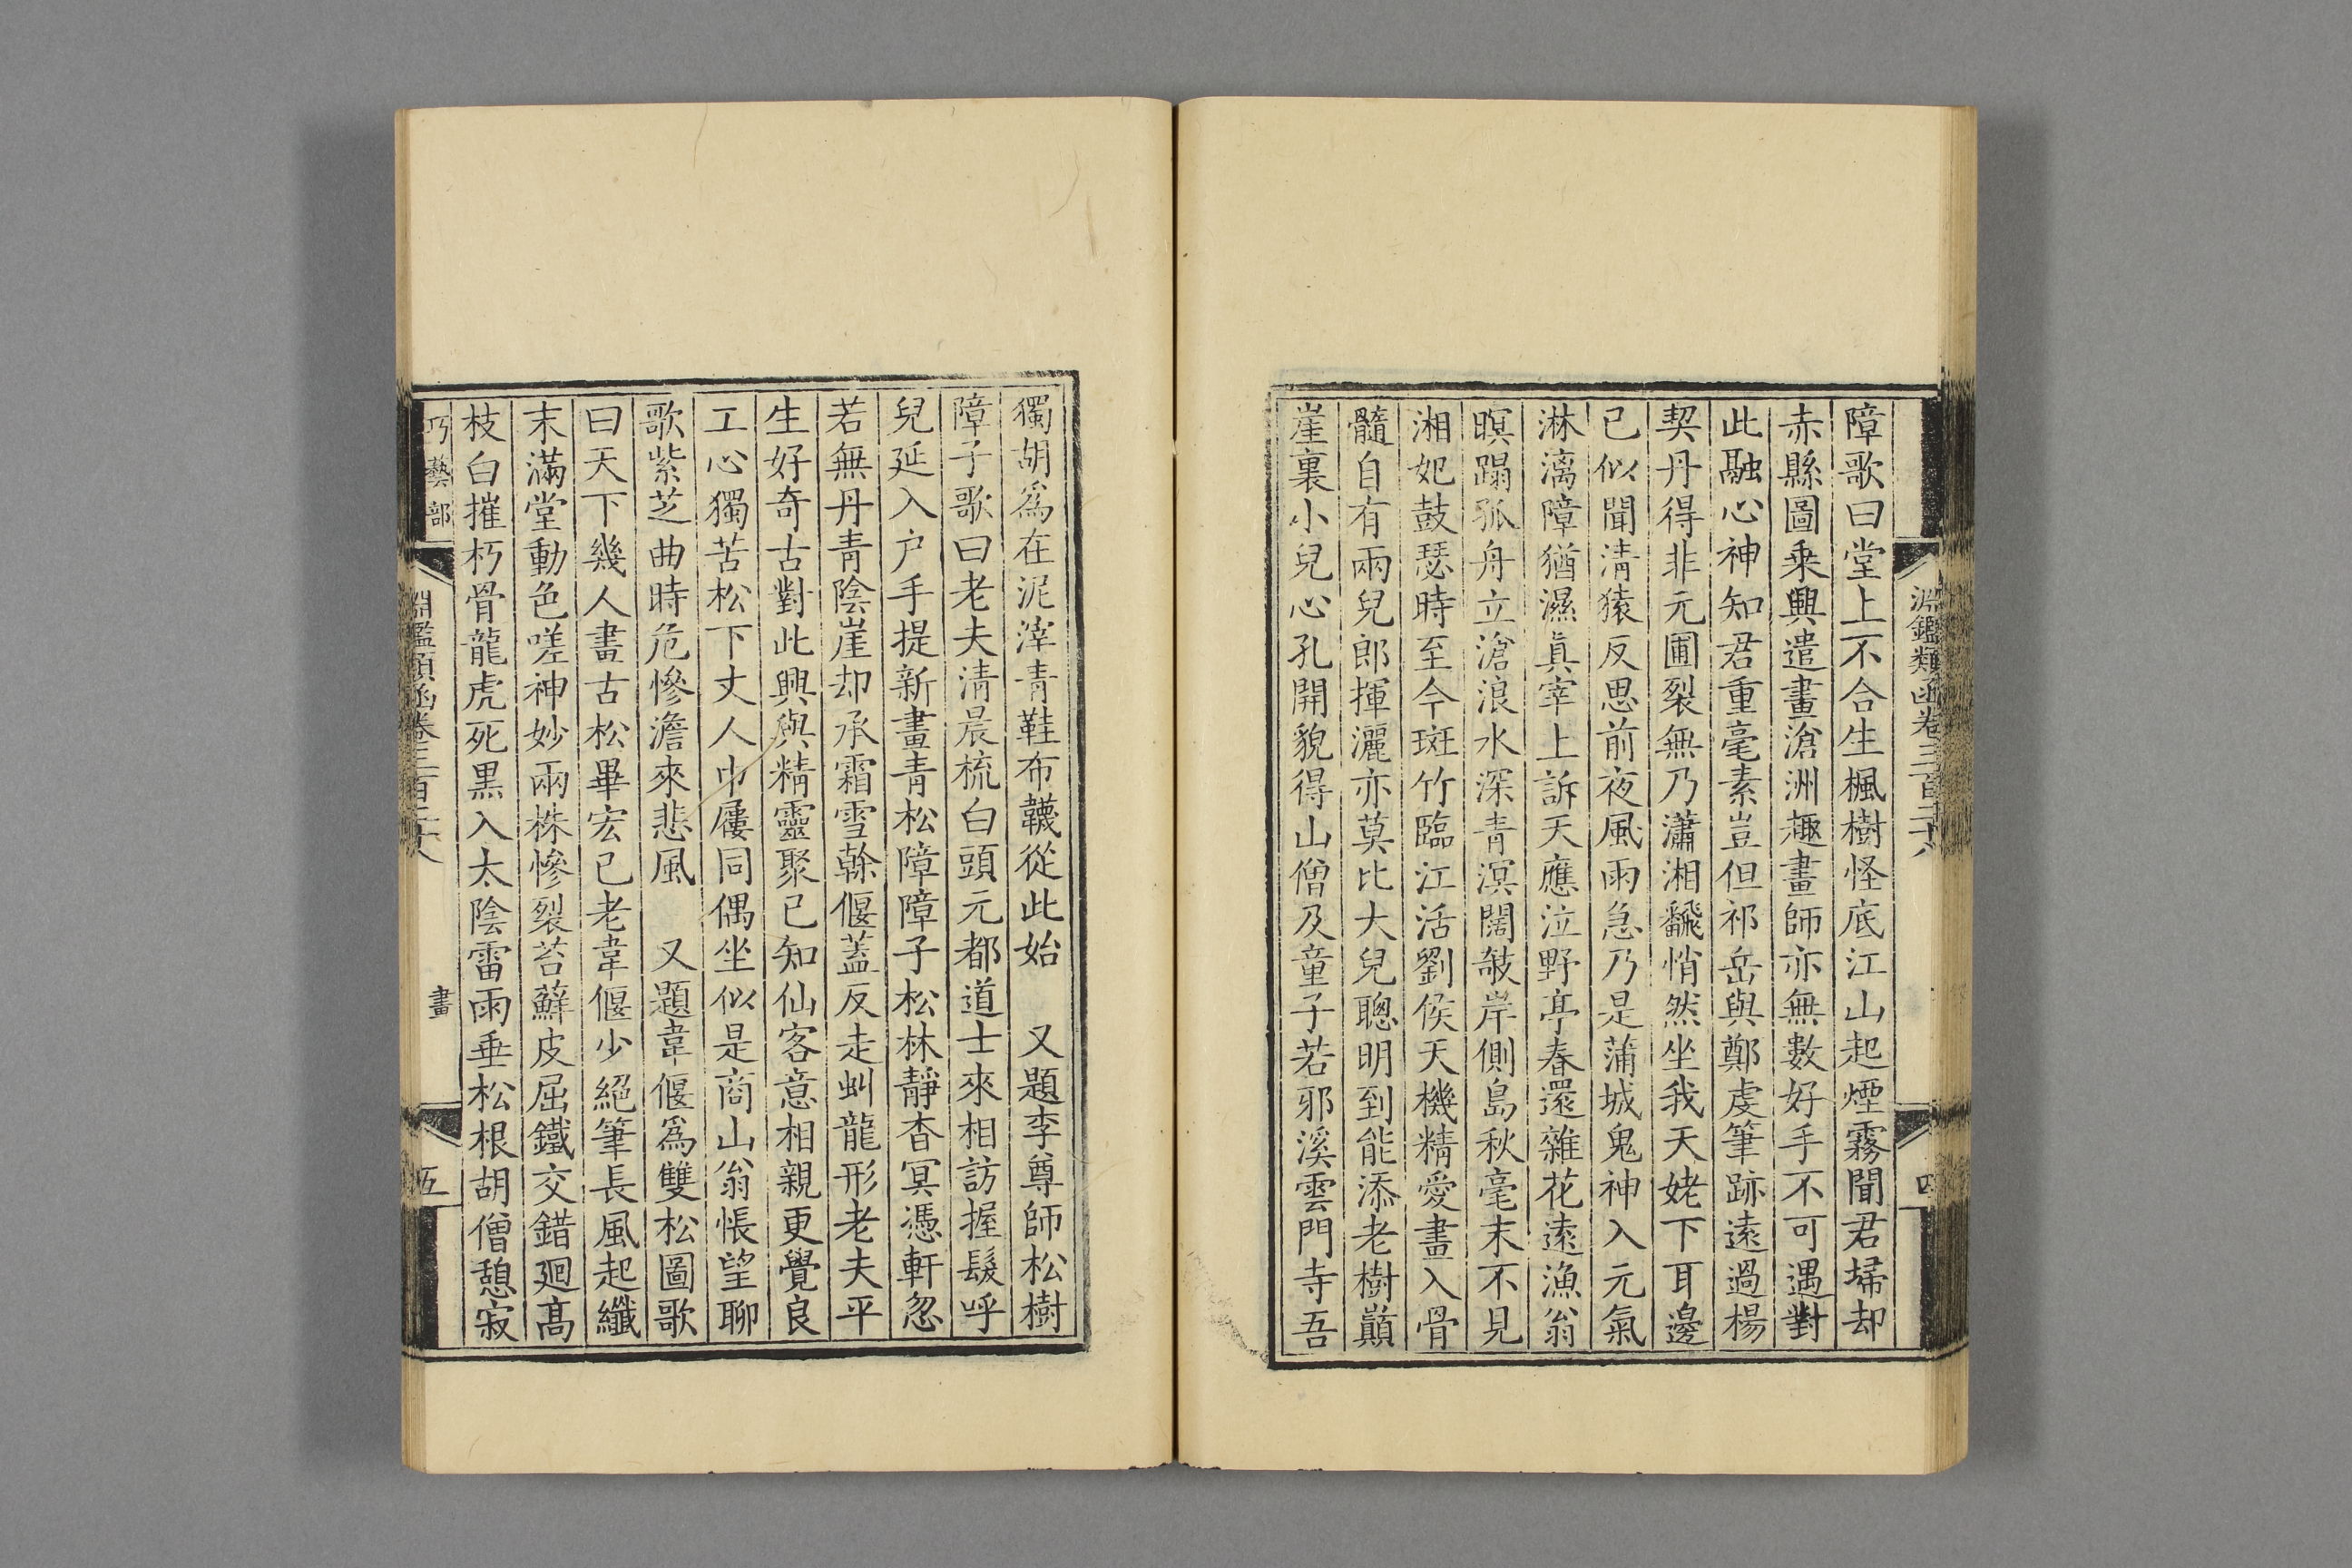 淵鑑類函卷三百二十八
四
障歌曰堂上不合生楓樹怪底江山起煙霧聞君埽却
赤縣圖乘興遣畫滄洲趣畫師亦無數好手不可遇對
此融心神知君重毫素豈但祁岳與鄭虔筆跡遠過楊
契丹得非元圃裂無乃瀟湘飜悄然坐我天姥下耳邊
已似聞淸猿反思前夜風雨急乃是蒲城鬼神入元氣
淋漓障猶濕眞宰上訴天應泣野亭春還雜花遠漁翁
暝蹋孤舟立滄浪水深青溟闊攲岸側島秋毫末不見
湘妃鼓瑟時至今斑竹臨江活劉侯天機精愛畫入骨
髓自有兩兒郎揮灑亦莫比大兒聰明到能添老樹巔
崖裏小兒心孔開貌得山僧及童子若邪溪雲門寺吾
獨胡爲在泥滓青鞋布韈從此始　又題李尊師松樹
障子歌曰老夫淸晨梳白頭元都道士來相訪握髮呼
兒延入户手提新畫青松障障子松林靜杳冥憑軒忽
若無丹青陰崖却承霜雪榦偃蓋反走虬龍形老夫平
生好奇古對此興與精靈聚已知仙客意相親更覺良
工心獨苦松下丈人巾屨同偶坐似是商山翁悵望聊
歌紫芝曲時危慘澹來悲風　又題韋偃爲雙松圖歌
曰天下幾人畫古松畢宏已老韋偃少絕筆長風起纖
末滿堂動色嗟神妙兩株慘裂苔蘚皮屈鐵交錯廻高
枝白摧朽骨龍虎死黑入太陰雷雨垂松根胡僧憩寂
巧藝部
淵鑑類函卷三百二十八
畫
五